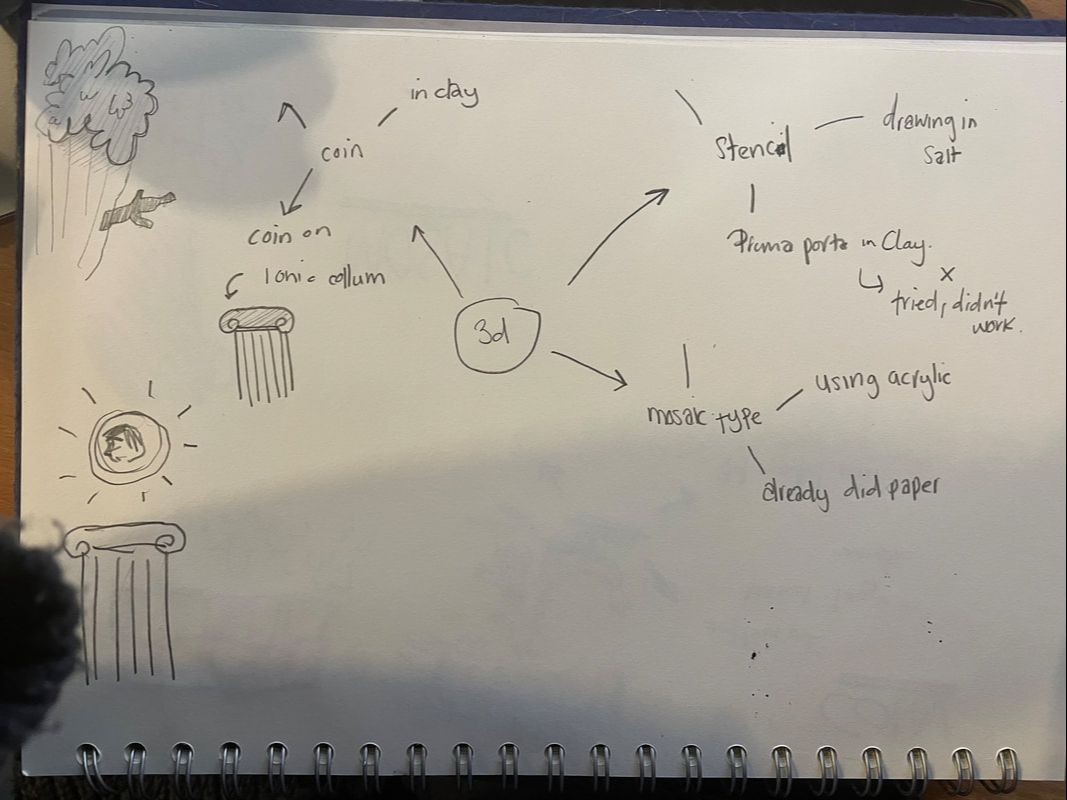 in clay
coin
coin on
Ionic collum
3d
Stencil
drawing in
salt
Prima porta in Clay.
x
tried, didn't
work.
mosaic type
using acrylic
already did paper